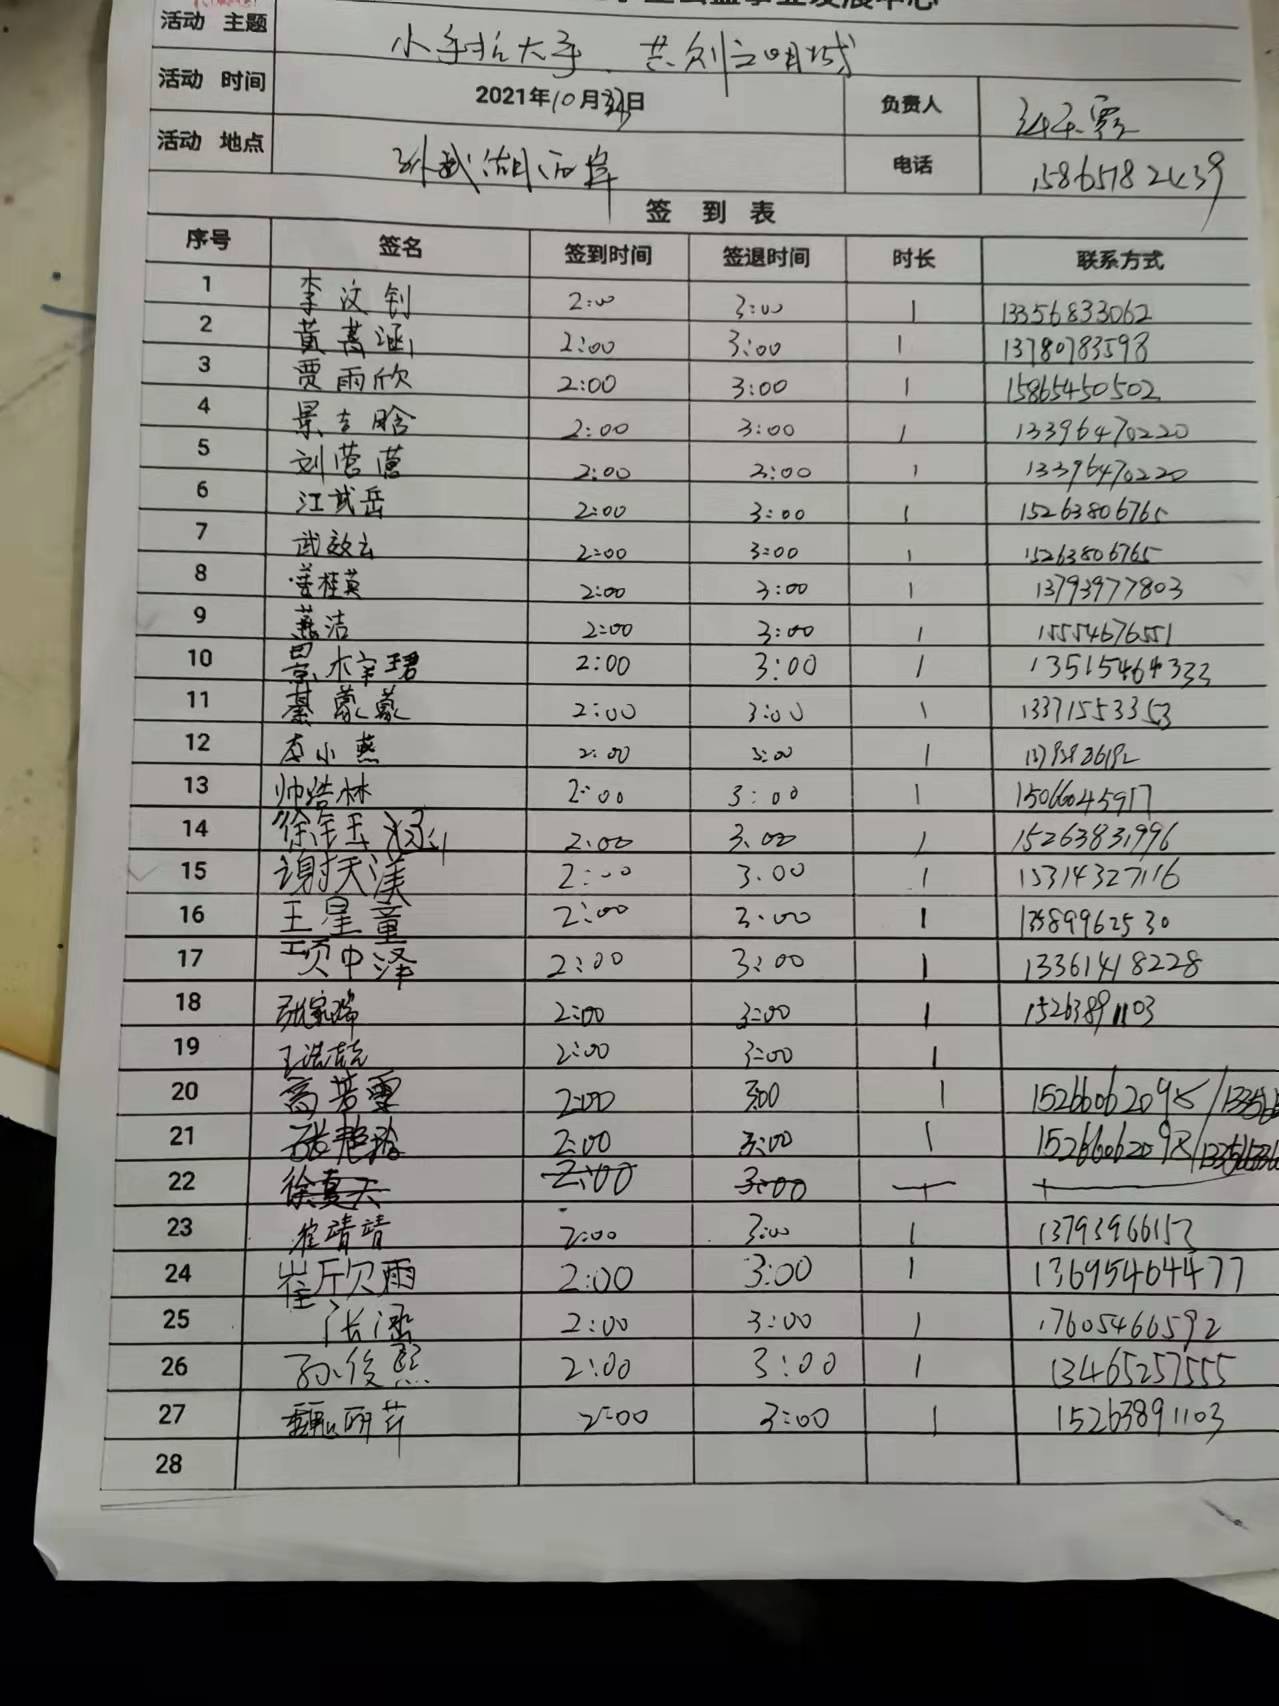 活动 主题 小手拉大手 共创文明城
活动 时间 2021年10月23日 负责人
活动 地点 孙武湖西岸 电话 15865182439
签 到 表
序号 签名 签到时间 签退时间 时长 联系方式
1 李汶钊 2:00 3:00 1 13356833062
2 黄菖涵 2:00 3:00 1 13780783598
3 贾雨欣 2:00 3:00 1 15865450502
4 景 晗 2:00 3:00 1 13396470220
5 刘营营 2:00 3:00 1 13396470220
6 江武岳 2:00 3:00 1 15263806765
7 武效云 2:00 3:00 1 15263806765
8 桂英 2:00 3:00 1 13793977803
9 燕洁 2:00 3:00 1 15554676551
10 景梓珺 2:00 3:00 1 13515464333
11 綦蒙蒙 2:00 3:00 1 13371553353
12 李小燕 2:00 3:00 1
13 帅浩林 2:00 3:00 1 15066045917
14 徐钰涵 2:00 3:00 1 15263831996
15 谢天渼 2:00 3:00 1 15314327116
16 王星童 2:00 3:00 1 13589962530
17 项中泽 2:00 3:00 1 13361418228
18 张家瑞 2:00 3:00 1 15263891103
19 王浩 2:00 3:00 1
20 高若雯 2:00 3:00 1 15266062095/
21 张艳玲 2:00 3:00 1 15266062098/
22 徐夏天 2:00 3:00 1
23 崔靖靖 2:00 3:00 1 13793966157
24 崔欣雨 2:00 3:00 1 13695464477
25 张涵 2:00 3:00 1 17605466592
26 孙俊熙 2:00 3:00 1 13465257555
27 魏明芹 2:00 3:00 1 15263891103
28